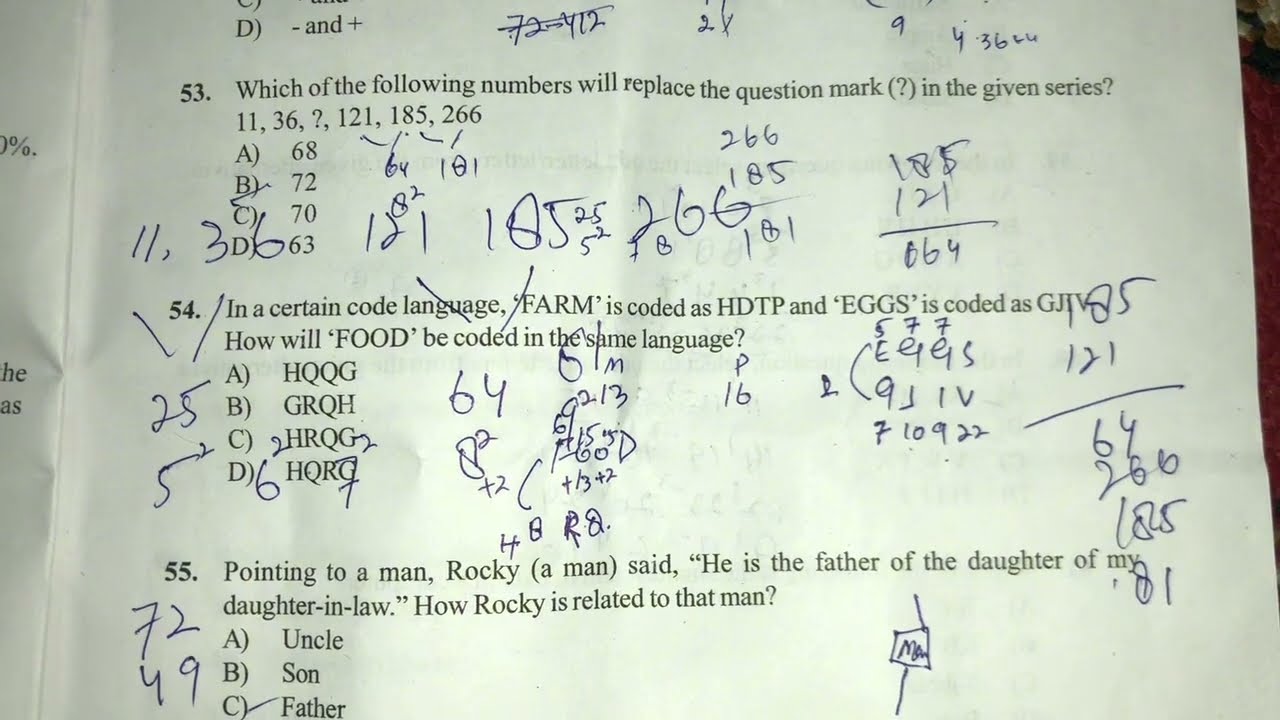 D) - and +
72 412
9
4 36
53. Which of the following numbers will replace the question mark (?) in the given series?
11, 36, ?, 121, 185, 266
A) 68
B) 72
C) 70
D) 63
64 181
8²
11, 36 121 185 266
25
5²
266
185
181
185
121
064
0%.
54. In a certain code language, 'FARM' is coded as HDTP and 'EGGS' is coded as GJIV.
How will 'FOOD' be coded in the same language?
A) HQQG
B) GRQH
C) HRQG
D) HQRG
he
as
25
5²
6 7
64
8²
+2
+3+2
M
13
P
16
5 7 7
E G G S
2
9J IV
7 10 9 22
185
121
64
266
185
81
55. Pointing to a man, Rocky (a man) said, "He is the father of the daughter of my
daughter-in-law." How Rocky is related to that man?
A) Uncle
B) Son
C) Father
72
49
Man